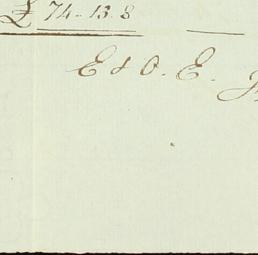 £ 74 - 13. 8
E & O. E.